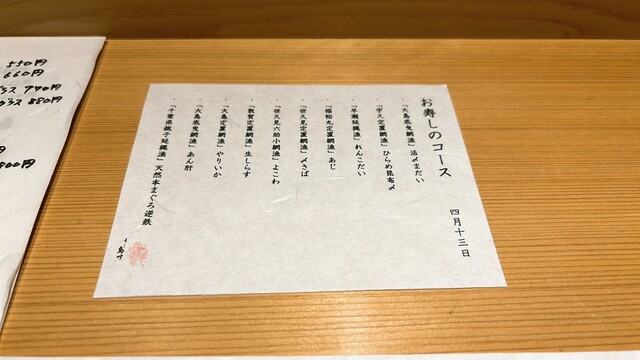 お寿しのコース
四月十三日
・「大島底曳網漁」活〆まだい
・「宇久定置網漁」ひらめ昆布〆
・「早瀬延縄漁」れんこだい
・「福祐丸定置網漁」あじ
・「世久見定置網漁」〆さば
・「世久見六助小網漁」よこわ
・「敦賀定置網漁」生しらす
・「大島定置網漁」やりいか
・「大島底曳網漁」あん肝
・「千葉県銚子延縄漁」天然本まぐろ逆鉄
550円
660円
グラス 770円
グラス 880円